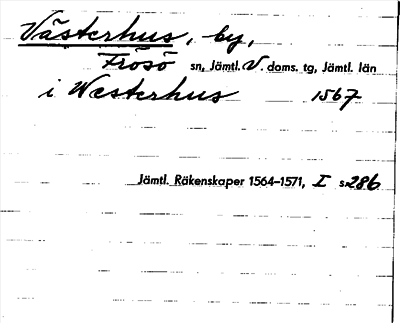 Västerhus, by,
Frösö sn, Jämtl. V. doms. tg, Jämtl. län
i Westerhus 1567
Jämtl. Räkenskaper 1564-1571, I s. 286